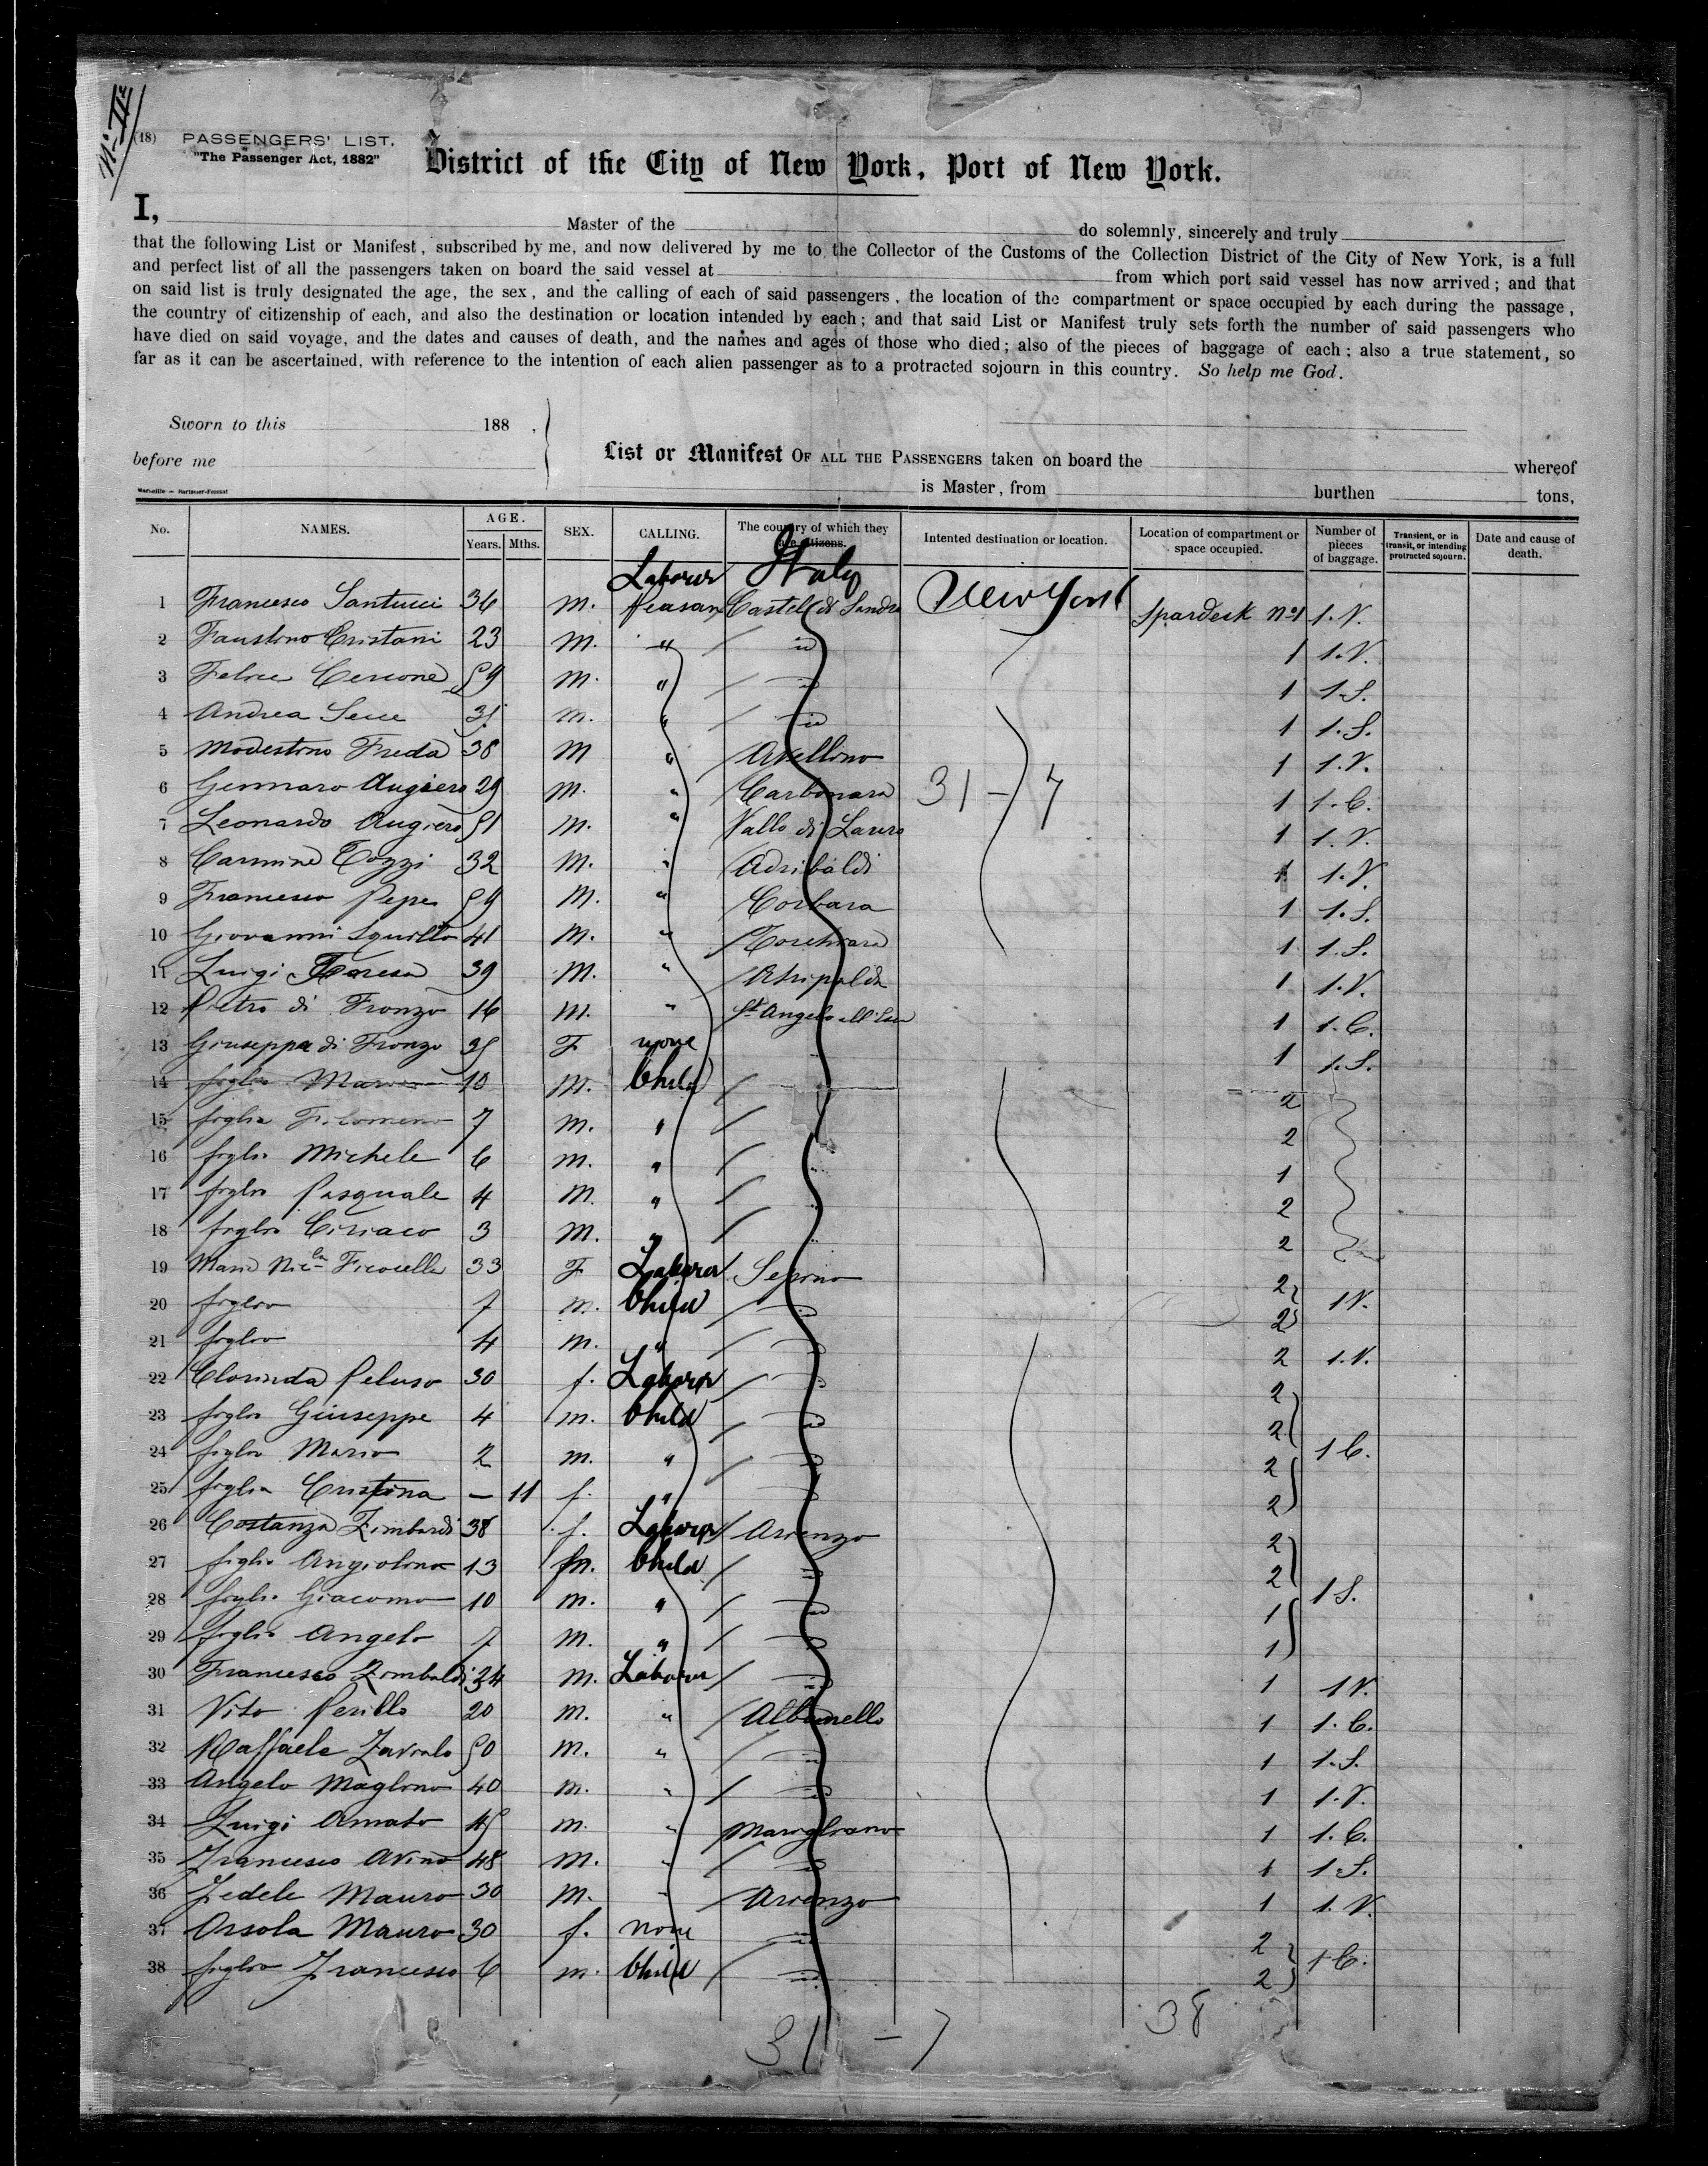 N: II
(18) PASSENGERS' LIST.
"The Passenger Act, 1882"
District of the City of New York, Port of New York.
I, Master of the do solemnly, sincerely and truly
that the following List or Manifest, subscribed by me, and now delivered by me to the Collector of the Customs of the Collection District of the City of New York, is a full
and perfect list of all the passengers taken on board the said vessel at from which port said vessel has now arrived; and that
on said list is truly designated the age, the sex, and the calling of each of said passengers, the location of the compartment or space occupied by each during the passage,
the country of citizenship of each, and also the destination or location intended by each; and that said List or Manifest truly sets forth the number of said passengers who
have died on said voyage, and the dates and causes of death, and the names and ages of those who died; also of the pieces of baggage of each; also a true statement, so
far as it can be ascertained, with reference to the intention of each alien passenger as to a protracted sojourn in this country. So help me God.
Sworn to this 188 ,
before me
List or Manifest OF ALL THE PASSENGERS taken on board the whereof
is Master, from burthen tons,
No. NAMES. AGE. Years. Mths. SEX. CALLING. The country of which they are citizens. Intented destination or location. Location of compartment or space occupied. Number of pieces of baggage. Transient, or in transit, or intending protracted sojourn. Date and cause of death.
Labourer Italy
1 Francesco Santucci 36 m. peasant Castel di Sandro New York Spardeck No1 1.V.
2 Faustino Cristani 23 m. " id 1 1.V.
3 Felice Cercone 59 m. " id 1 1.S.
4 Andrea Secce 35 m. " id 1 1.S.
5 Modestino Freda 38 m " Avellino 1 1.V.
6 Gennaro Augiero 29 m. " Carbonara 31 - 7 1 1.C.
7 Leonardo Augiero 51 m. " Vallo di Lauro 1 1.V.
8 Carmine Tozzi 32 m. " Adribaldi 1 1.V.
9 Francesco Pepe 59 m. " Corbara 1 1.S.
10 Giovanni Squillo 41 m. " Torchiara 1 1.S.
11 Luigi Teresa 39 m. " Atripalda 1 1.V.
12 Pietro di Fronzo 16 m. " St Angelo all 1 1.C.
13 Giuseppa di Fronzo 35 F none 1 1.S.
14 figlio 10 m. Child 2
15 figlia Filomena 7 m. " 2
16 figlio Michele 6 m. " 1
17 figlio Pasquale 4 m. " 2
18 figlio Ciriaco 3 m. " 2
19 Maria Nicla Ficocelli 33 F Laborer Sepino 2
20 figlio 7 m. Child id 2 1V.
21 figlio 4 m. " id 2 1.V.
22 Clorinda Peluso 30 f. Laborer id 2
23 figlio Giuseppe 4 m. Child id 2
24 figlio Mario 2 m. " id 2 1 C.
25 figlia Cristina — 11 f. " id 2
26 Costanza Zimbardi 38 f. Laborer Arienzo 2
27 figlio Angiolino 13 m. Child id 2
28 figlio Giacomo 10 m. " id 1 1 S.
29 figlio Angelo 7 m. " id 1
30 Francesco Zimbaldi 34 m. Laborer id 1 1V.
31 Vito Perillo 20 m. " Albanella 1 1.C.
32 Raffaele 50 m. " id 1 1.S.
33 Angelo Maglino 40 m. " id 1 1.V.
34 Luigi Amato 45 m. " Marigliano 1 1.C.
35 Francesco Avino 48 m. " id 1 1.S.
36 Fedele Mauro 30 m. " Arienzo 1 1.V.
37 Orsola Mauro 30 f. none id 2
38 figlio Francesco 6 m. Child id 2 1 C.
38
31 - 7